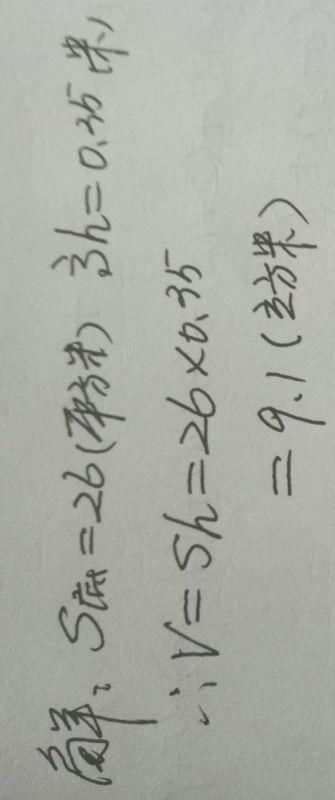 解：S底=26(平方米) 高h=0.35(米)
∴V=Sh=26×0.35
=9.1(立方米)